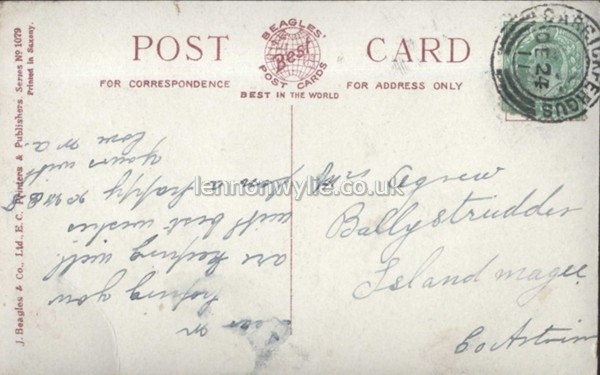 POST CARD
BEAGLES'
Best
POST CARDS
FOR CORRESPONDENCE
BEST IN THE WORLD
FOR ADDRESS ONLY
J. Beagles & Co., Ltd., E. C. Printers & Publishers. Series Nº 1079
Printed in Saxony.
CARRICKFERGUS
DE 24
11
lennonwylie.co.uk
Agnew
Ballystrudder
Island magee
Co Antrim
Dear
hoping you
are keeping well
with best wishes
a happy
yours with
love